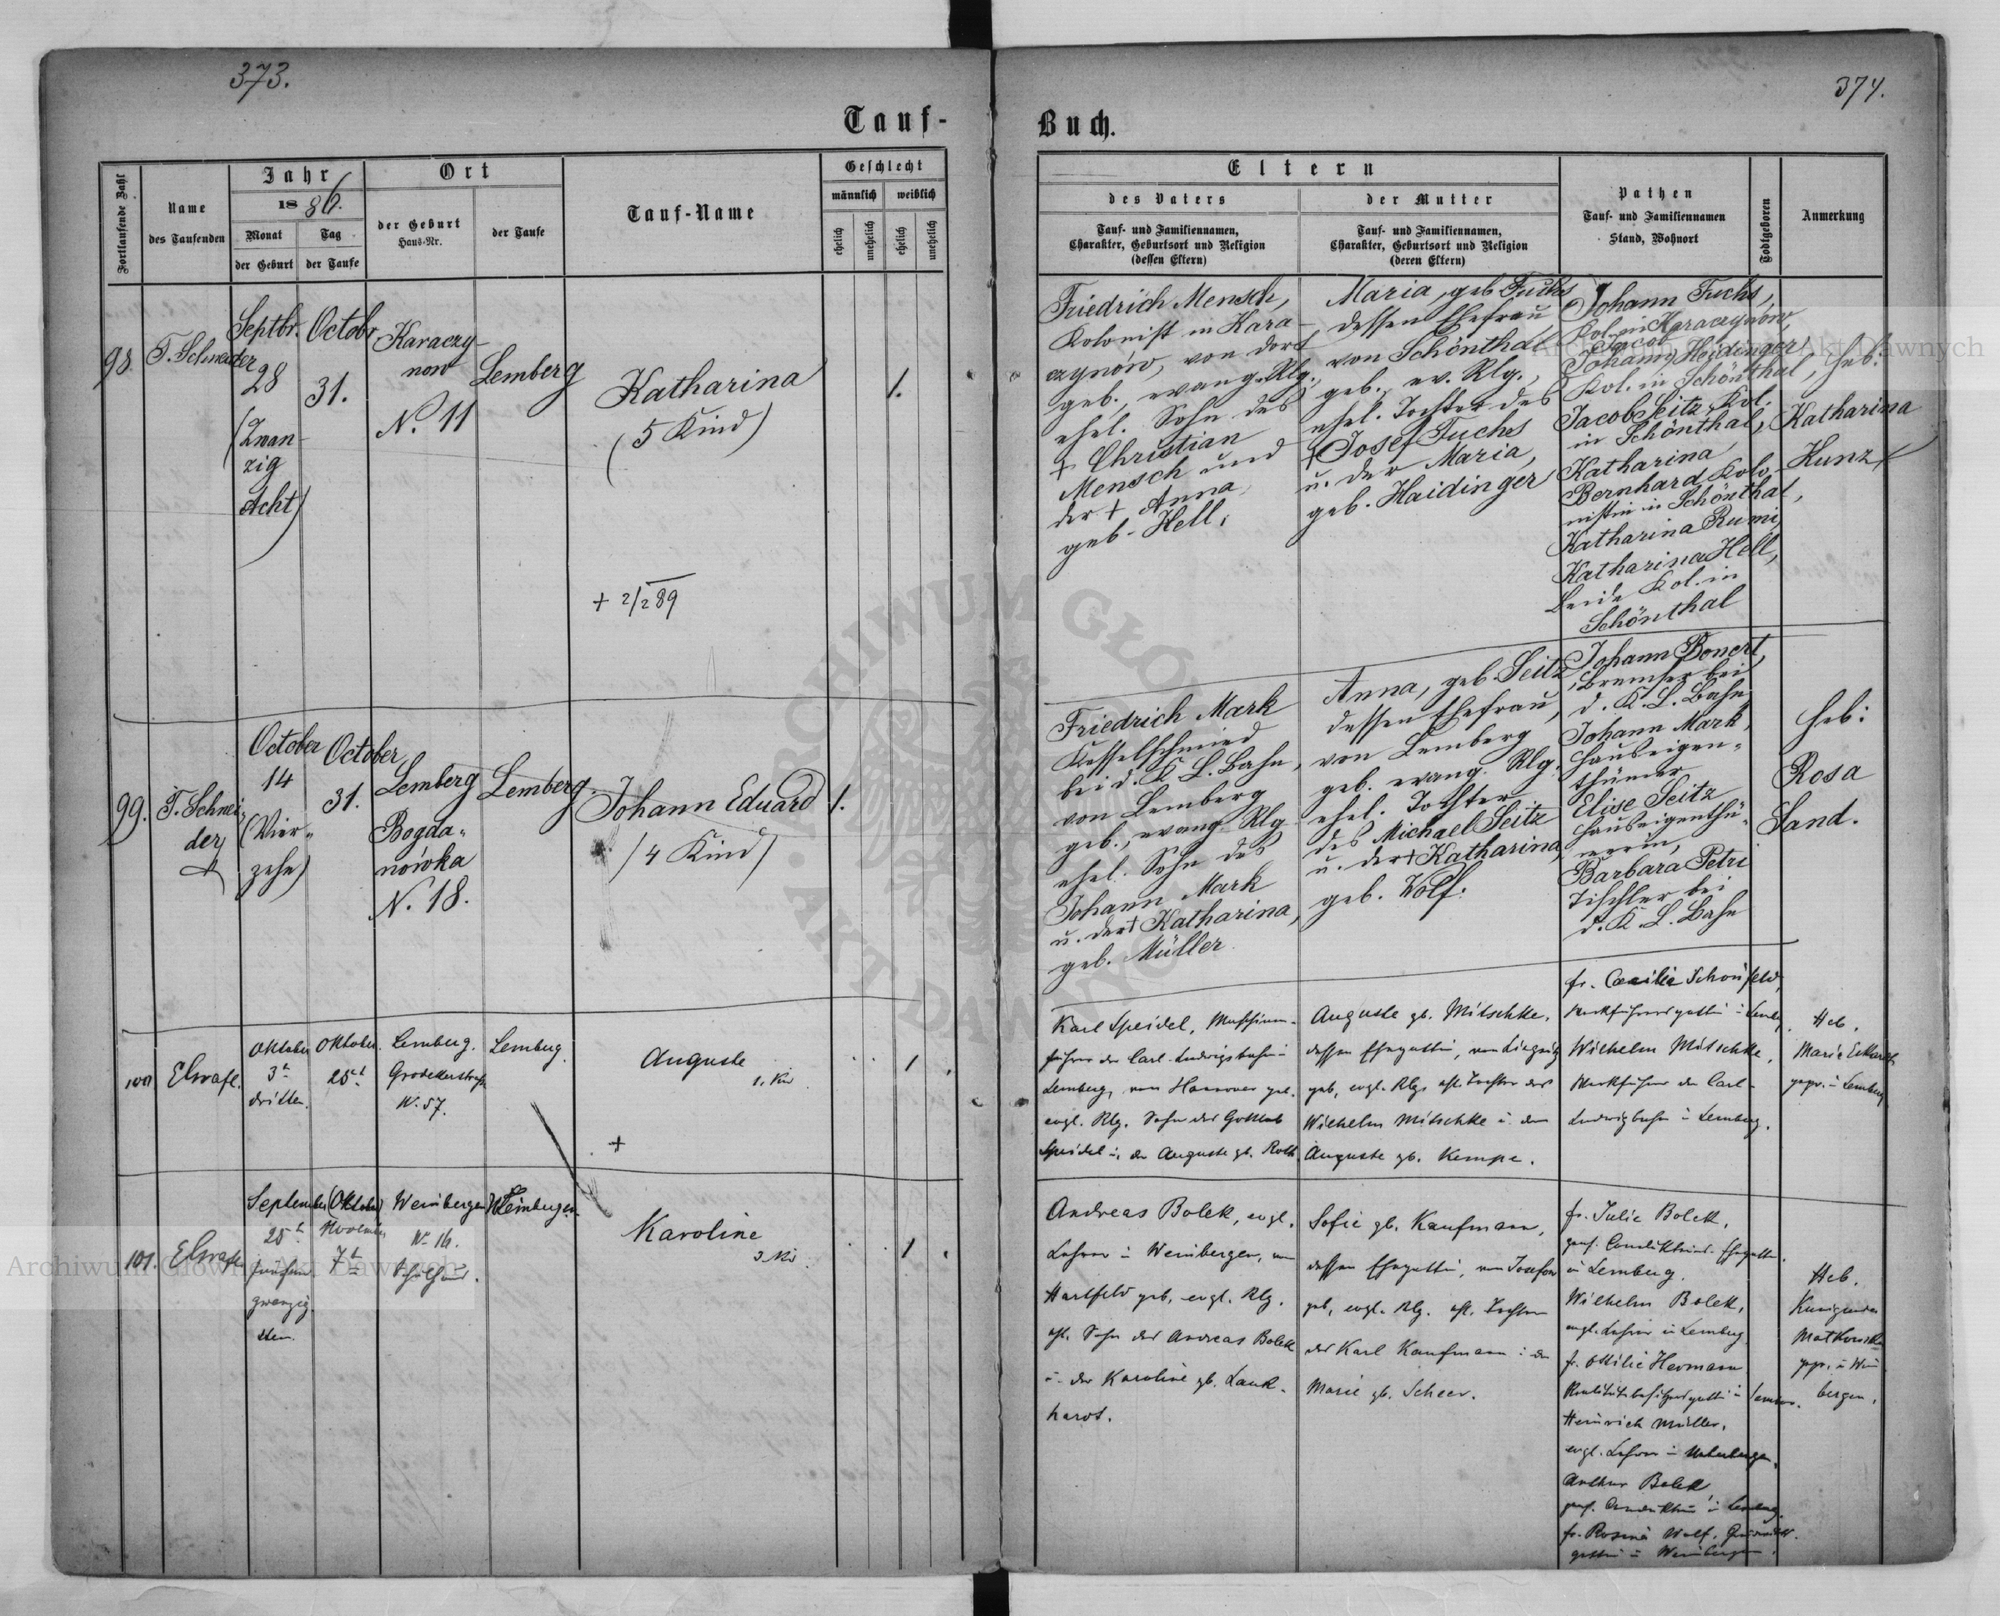 373.
374.
Tauf-
Buch.
Fortlaufende Zahl
Name
des Taufenden
Jahr
1886.
Monat
der Geburt
Tag
der Taufe
Ort
der Geburt
Haus-Nr.
der Taufe
Tauf-Name
Geschlecht
männlich
weiblich
ehelich
unehelich
ehelich
unehelich
Eltern
des Vaters
Tauf- und Familiennamen,
Charakter, Geburtsort und Religion
(dessen Eltern)
der Mutter
Tauf- und Familiennamen,
Charakter, Geburtsort und Religion
(deren Eltern)
Pathen
Tauf- und Familiennamen
Stand, Wohnort
Todtgeboren
Anmerkung
98
T. Schneider
Septbr.
28
(Zwan-
zig
Acht)
Octobr
31.
Karaczy-
now
N. 11
Lemberg
Katharina
(5 Kind)
+ 2/2 89
1.
Friedrich Mensch,
Kolonist in Kara-
czynów, von dort
geb., evang. Rlg.,
ehel. Sohn des
+ Christian
Mensch und
der + Anna,
geb. Hell,
Maria, geb Fuchs
dessen Ehefrau
von Schönthal
geb., ev. Rlg.,
ehel. Tochter des
+ Josef Fuchs
u. der Maria,
geb. Haidinger
Johann Fuchs,
Kol. in Karaczynów,
Jacob
Johann Haidinger,
Kol. in Schönthal,
Jacob Seitz, Kol.
in Schönthal,
Katharina
Bernhard Kolo-
nistin in Schönthal,
Katharina Rumi,
Katharina Hell,
beide Kol. in
Schönthal
Heb:
Katharina
Kunz
99.
T. Schnei-
der
October
14
(Vier-
zehn)
October
31.
Lemberg
Bogda-
nówka
N. 18.
Lemberg.
Johann Eduard
(4 Kind)
1.
Friedrich Mark
Kesselschmied
bei d. K. L. Bahn,
von Lemberg
geb., evang Rlg
ehel. Sohn des
Johann Mark
u. der + Katharina,
geb. Müller
Anna, geb. Seitz,
dessen Ehefrau,
von Lemberg
geb. evang. Rlg.
ehel. Tochter
des Michael Seitz
u. der + Katharina,
geb. Wolf.
Johann Bonert,
Bremser bei
d. K. L. Bahn
Johann Mark,
Hauseigen-
thümer
Elise Seitz
Hauseigenthü-
merin,
Barbara Petri
Tischler bei
d. K. L. Bahn
Heb:
Rosa
Sand.
100
Elsvaf.
Oktober
3t
dritten.
Oktober.
25t
Lemberg.
Grodekerstraße
N. 57.
Lemberg.
Auguste
1. Kd
+
1
Karl Speidel, Maschinen-
führer der Carl-Ludwigsbahn in
Lemberg, von Hannover geb.
evgl. Rlg. Sohn des Gottlob
Speidel u. der Auguste gb. Roth.
Auguste gb. Mitschke,
dessen Ehegattin, von Liegnitz
geb, evgl. Rlg. ehl. Tochter des
Wilhelm Mitschke u. der
Auguste gb. Kempe.
fr. Caecilie Schönfeld,
Werkführersgattin in Lemberg
Wilhelm Mitschke,
Werkführer der Carl-
Ludwigbahn in Lemberg.
Heb.
Marie Eckhardt
gepr. in Lemberg
101.
September
25t
fünfund
zwanzig
sten.
(Oktober)
November
7t
Weinbergen
N. 16.
Schulhaus.
Weinbergen
Karoline
3 Kd.
1
Andreas Bolek, evgl.
Lehrer in Weinbergen, von
Hartfeld geb, evgl. Rlg.
ehl. Sohn des Andreas Bolek
u. der Karoline gb. Lank-
hardt.
Sofie gb. Kaufmann,
dessen Ehegattin, von Josefow
geb, evgl. Rlg. ehl. Tochter
des Karl Kaufmann u. der
Marie gb. Scheer.
fr. Julie Bolek,
in Lemberg.
Wilhelm Bolek,
evgl. Lehrer in Lemberg
fr. Ottilie Hermann
Realitätenbesitzersgattin in Lemberg.
Heinrich Müller,
evgl. Lehrer in Unterbergen,
Arthur Bolek
fr. Rosina Wolf,
gattin in Weinbergen.
Heb.
Kunigunde
Matkowska
gepr. in Wein
bergen.
Archiwum Główne Akt Dawnych
Archiwum Główne Akt Dawnych
ARCHIWUM GŁÓWNE AKT DAWNYCH